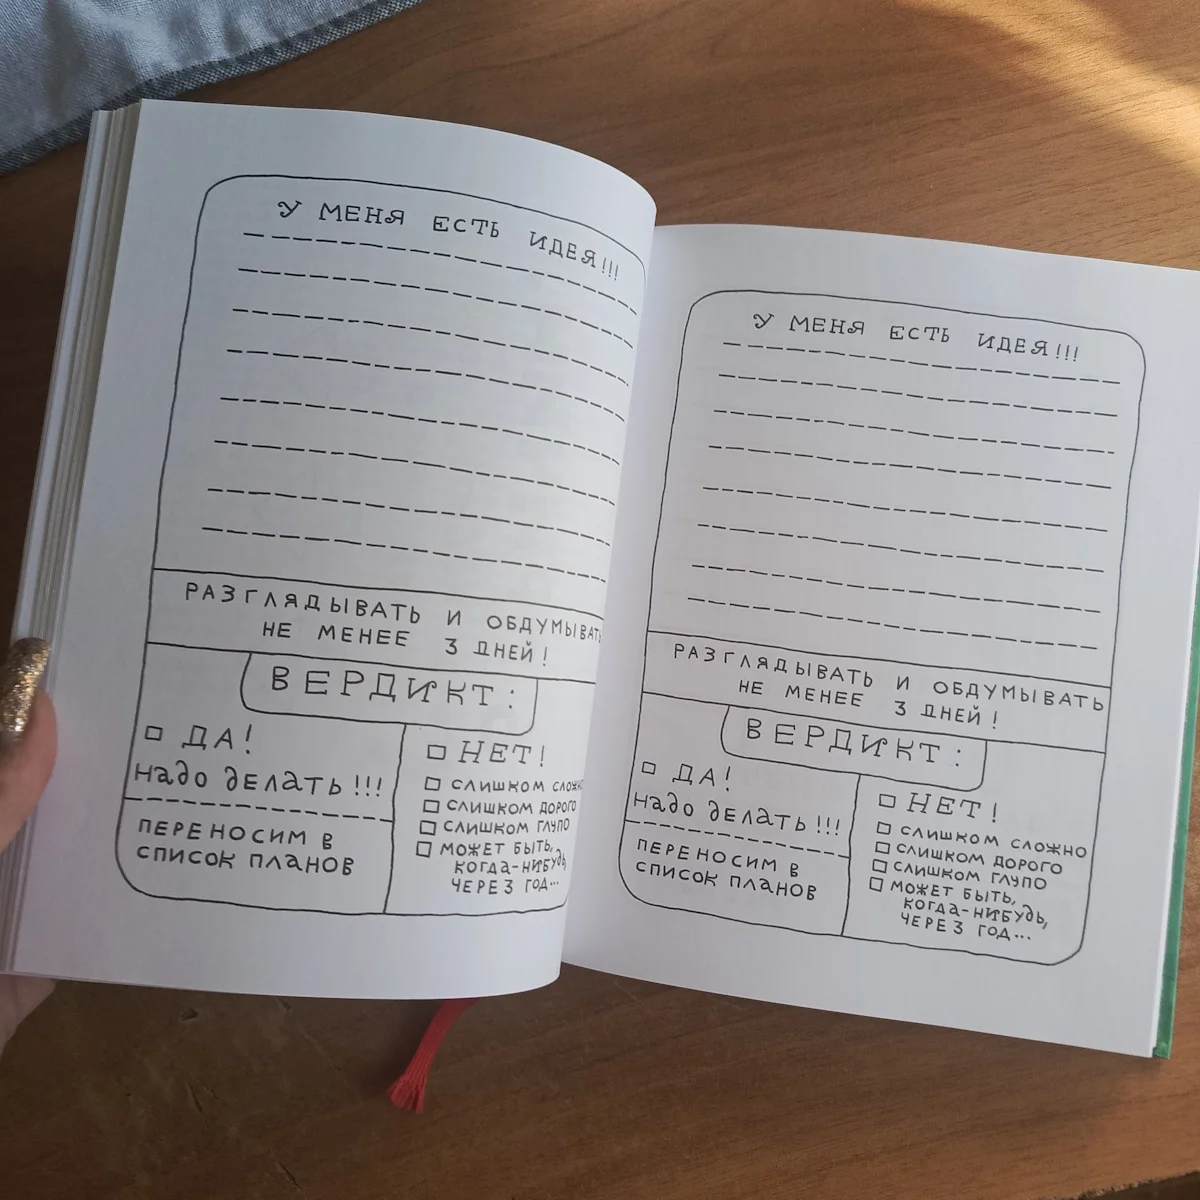 У МЕНЯ ЕСТЬ ИДЕЯ!!!
РАЗГЛЯДЫВАТЬ И ОБДУМЫВАТЬ
НЕ МЕНЕЕ 3 ДНЕЙ!
ВЕРДИКТ:
ДА!
надо делать!!!
ПЕРЕНОСИМ В
СПИСОК ПЛАНОВ
НЕТ!
СЛИШКОМ СЛОЖНО
СЛИШКОМ ДОРОГО
СЛИШКОМ ГЛУПО
МОЖЕТ БЫТЬ,
КОГДА-НИБУДЬ,
ЧЕРЕЗ ГОД...
У МЕНЯ ЕСТЬ ИДЕЯ!!!
РАЗГЛЯДЫВАТЬ И ОБДУМЫВАТЬ
НЕ МЕНЕЕ 3 ДНЕЙ!
ВЕРДИКТ:
ДА!
надо делать!!!
ПЕРЕНОСИМ В
СПИСОК ПЛАНОВ
НЕТ!
СЛИШКОМ СЛОЖНО
СЛИШКОМ ДОРОГО
СЛИШКОМ ГЛУПО
МОЖЕТ БЫТЬ,
КОГДА-НИБУДЬ,
ЧЕРЕЗ ГОД...